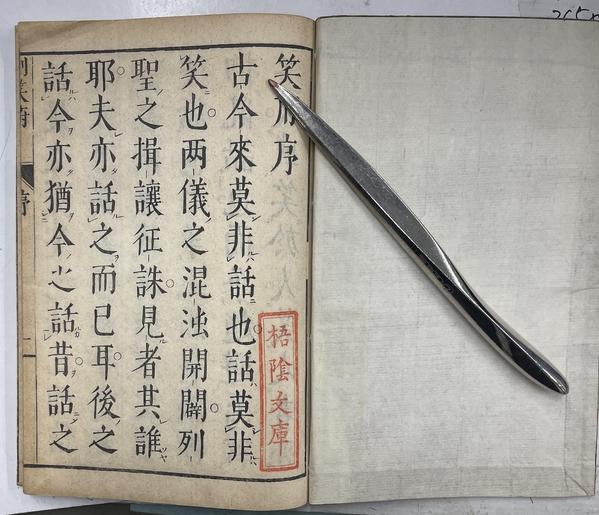 笑府序
古今來莫非話也話莫非
笑也两儀之混沌開闢列
聖之揖讓征誅見者其誰
耶夫亦話之而已耳後之
話今亦猶今之話昔話之
梧陰文庫
刪笑府
序
一